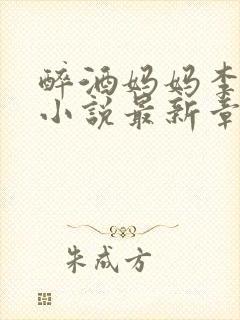 醉酒妈妈李
小说最新章
朱成方